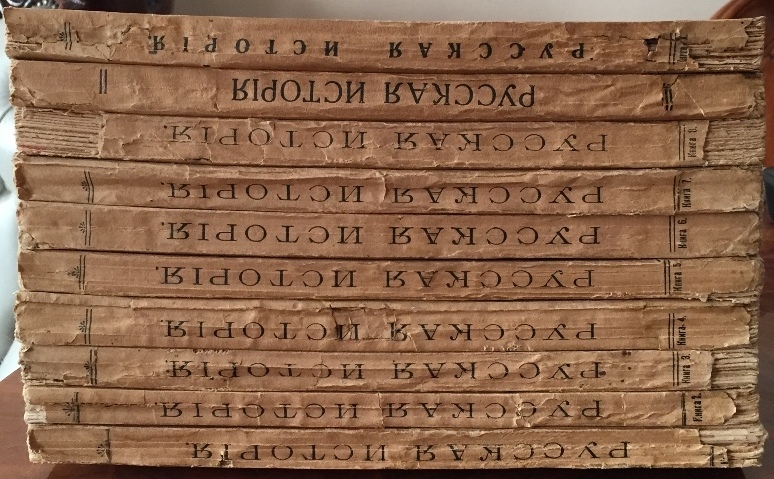 РУССКАЯ ИСТОРІЯ
РУССКАЯ ИСТОРІЯ
РУССКАЯ ИСТОРІЯ.
Книга 8.
РУССКАЯ ИСТОРІЯ.
Книга 7.
РУССКАЯ ИСТОРІЯ.
Книга 6.
РУССКАЯ ИСТОРІЯ.
Книга 5.
РУССКАЯ ИСТОРІЯ.
Книга 4.
РУССКАЯ ИСТОРІЯ.
Книга 3.
РУССКАЯ ИСТОРІЯ.
Книга 2.
РУССКАЯ ИСТОРІЯ.